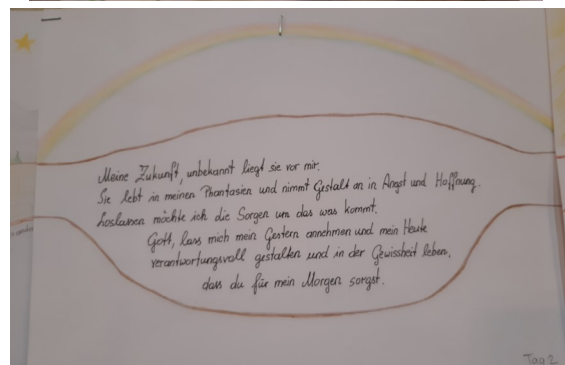 Meine Zukunft, unbekannt liegt sie vor mir.
Sie lebt in meinen Phantasien und nimmt Gestalt an in Angst und Hoffnung.
Loslassen möchte ich die Sorgen um das was kommt.
Gott, lass mich mein Gestern annehmen und mein Heute
verantwortungsvoll gestalten und in der Gewissheit leben,
dass du für mein Morgen sorgst.
Tag 2